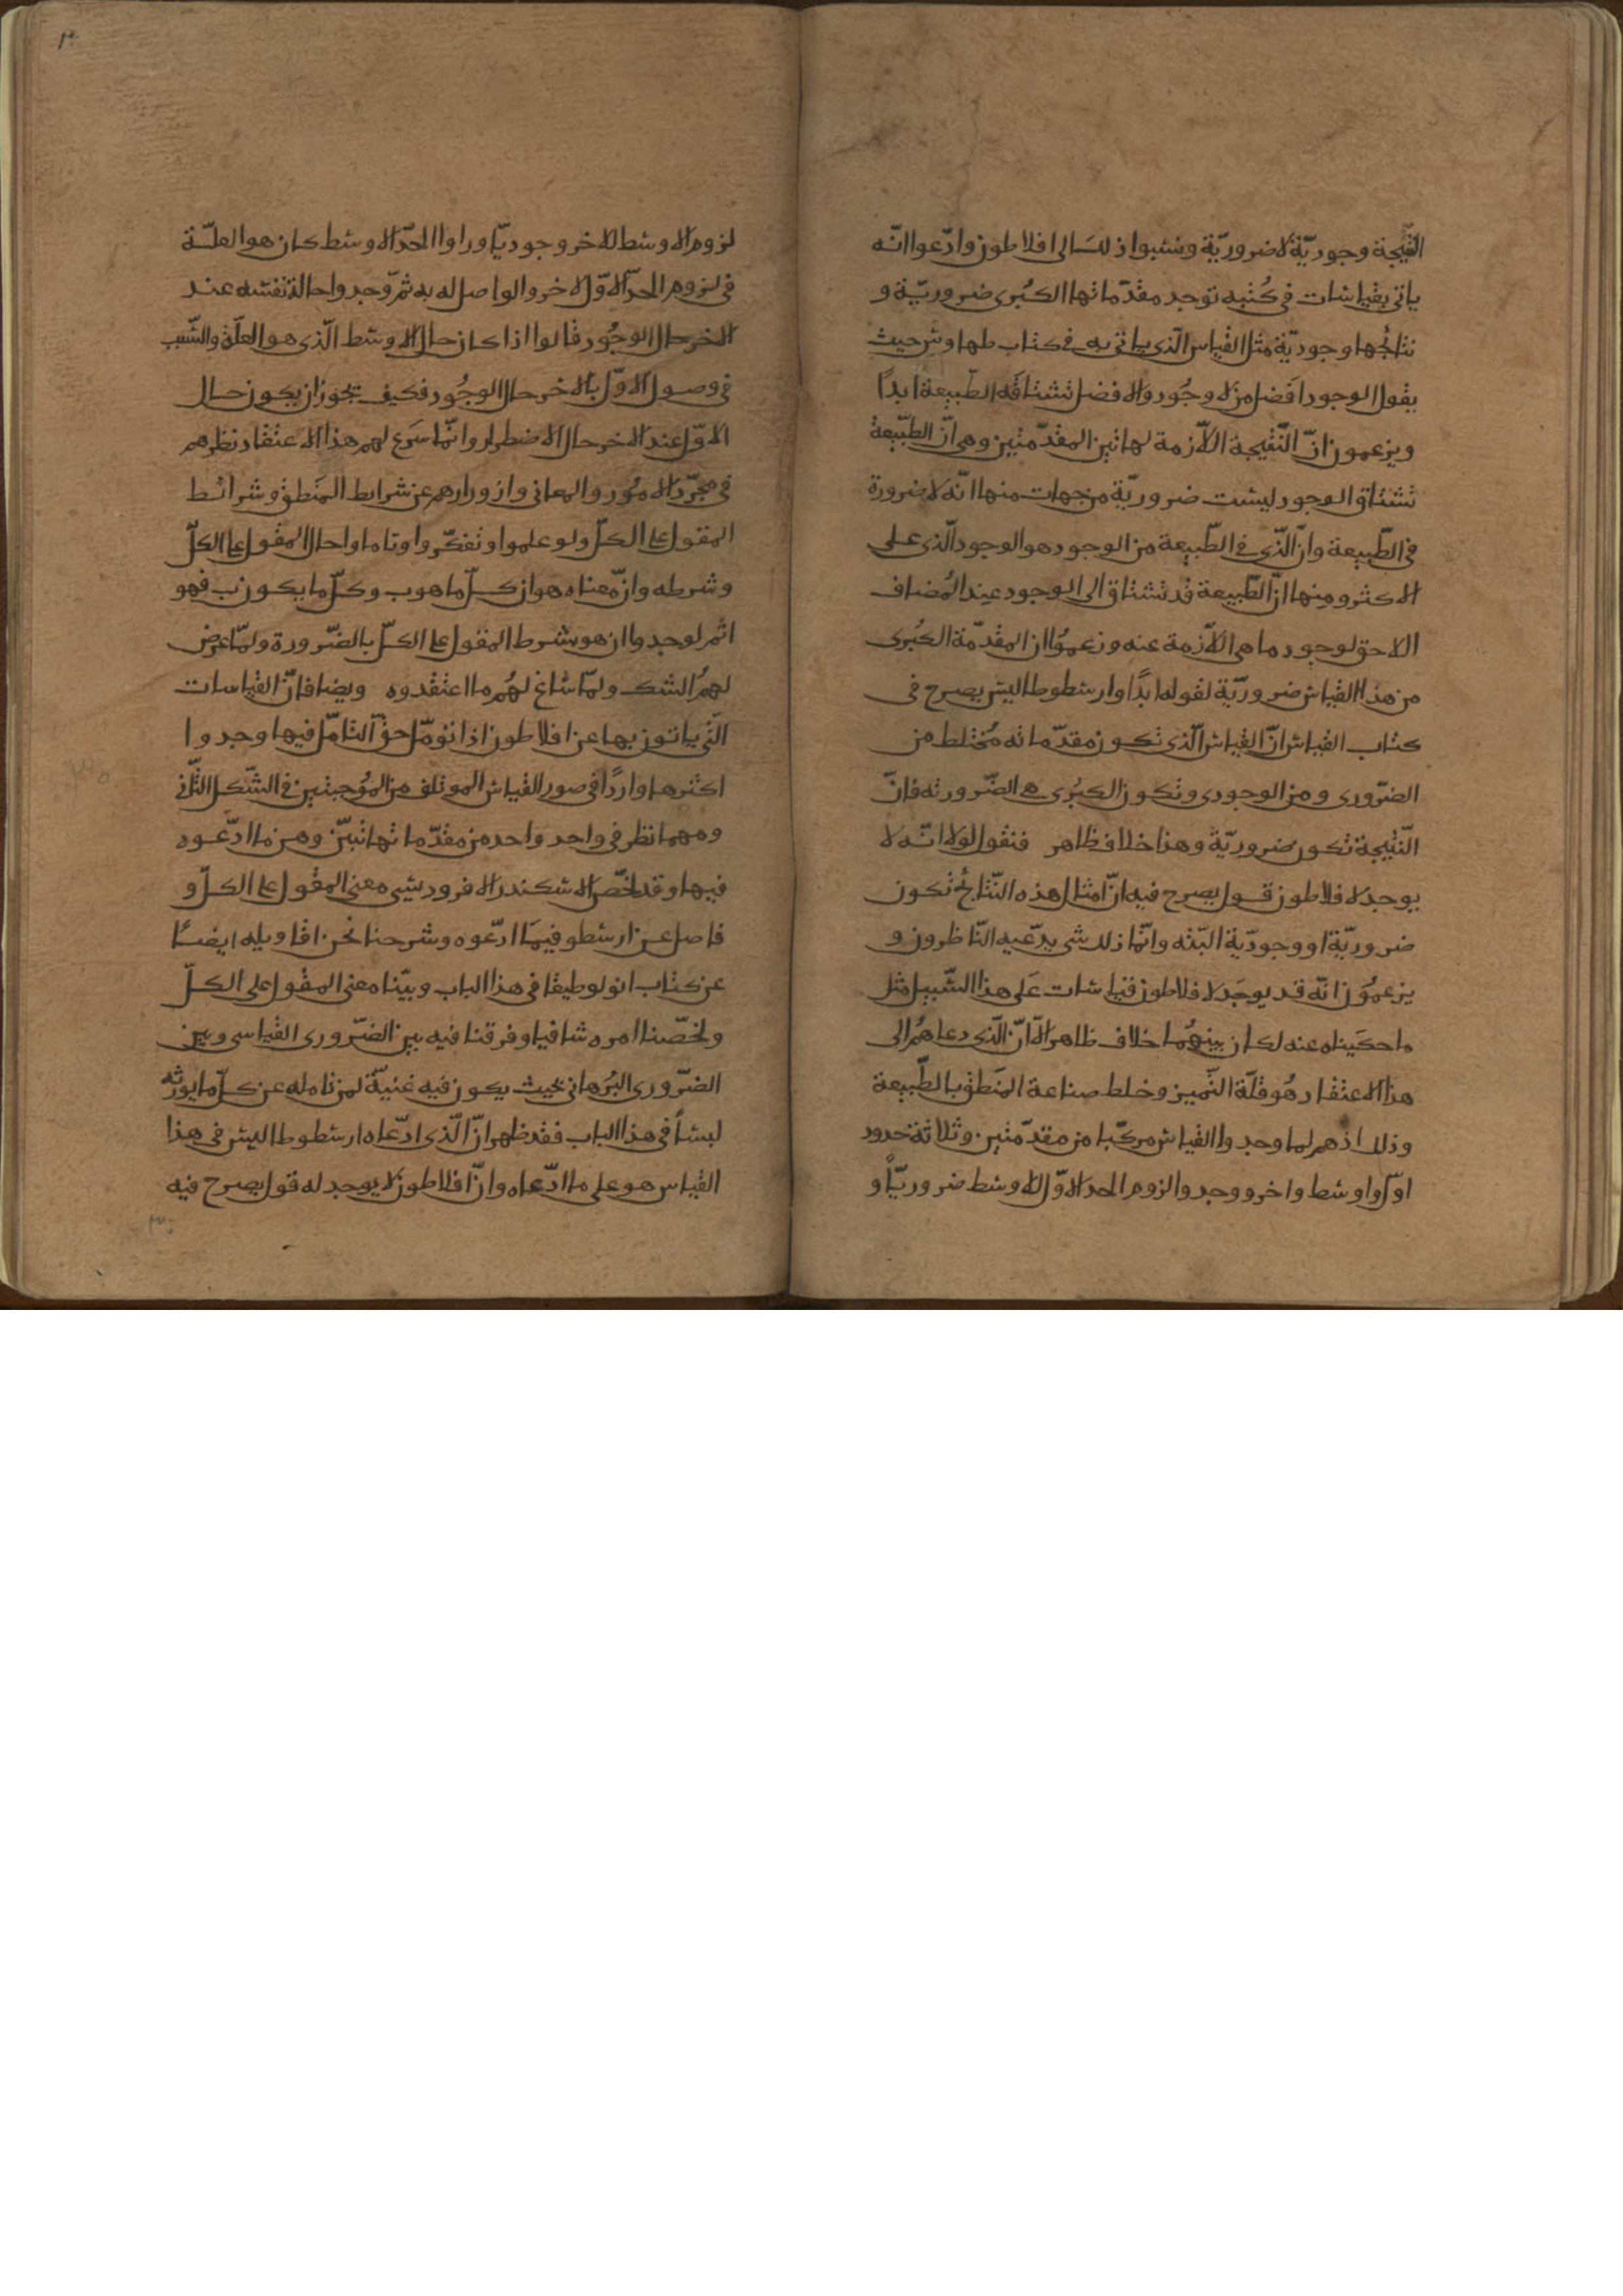 النتيجة وجوديّة لا ضروريّة ونسبوا ذلك الى افلاطون وادّعوا انّه
ياتى بقياسات فى كُتُبه توجد مقدّماتها الكبرى ضروريّة و
نتائجها وجوديّة مثل القياس الّذى ياتى به فى كتاب طيماوس حيث
يقول الوجود افضل من لا وجُود والافضل تشتاقه الطّبيعة ابدًا
ويزعمون انّ النّتيجة اللّازمة لهاتين المقدّمتين وهى انّ الطبّيعة
تشتاق الوجود ليست ضروريّة من جهات منها انّه لا ضرورة
فى الطّبيعة وانّ الّذى فى الطّبيعة من الوجود هو الوجود الّذى على
الاكثر ومنها انّ الطّبيعة قد تشتاق الى الوجود عند المُضاف
اللاحق لوجود ما هى اللّازمة عنه وزعموُا ان المقدّمة الكبرى
من هذا القياس ضروريّة لقوله ابدًا وارسطوطاليس يصرح فى
كتاب القياس انّ القياس الّذى تكون مقدّماته مُختلط من
الضّرورى ومن الوجودى وتكون الكبُرى هى الضّرورته فانّ
النّتيجة تكون ضروريّة وهذا خلاف ظاهر فنقول اولا انّه لا
يوجد لافلاطون قول يصرح فيه انّ امثال هذه النّتائج تكون
ضروريّة او وجوديّة البتّه وانّما ذلك شى يدّعيه النّاظرون و
يزعموُن انّه قد يوجَد لافلاطون قياسات عَلى هذا السّبيل مثل
ما حكيناه عنه لكان بينهُما خلاف ظاهر الّا انّ الّذى دعاهُم الى
هذا الاعتقاد هُو قلّة التّميز وخلط صناعة المَنطق بالطّبيعة
وذلك انّهم لما وجدوا القياس مركّبا من مقدّمتين وثلاثة حدود
اوّل واوسط واخر ووجدوا لزوم الحد الاوّل للاوسط ضروريّا و
لزوم الاوسط للاخر وجوديّا وراوا الحدّ الاوسط كان هو العلّة
فى لزوم الحدّ الاوّل للاخر والواصل له به ثمّ وجدوا حالة نفسه عند
الاخر حال الوجُود قالوا اذا كان حال الاوسط الّذى هو العلّة والسّبب
فى وصول الاوّل بالاخر حال الوجُود فكيف يجوز ان يكون حال
الاوّل عند الاخر حال الاضطرار وانّما سَوغ لهم هذا الاعتقاد نظرهم
فى مجرّد الامُور والمعانى وازورارهم عن شرايط المَنطق وشرائط
المقول على الكلّ ولو علموا وتفكّروا وتاملوا حال المقول على الكلّ
وشرطه وانّ معناه هو ان كلّ ما هو ب وكلّ ما يكون ب فهو
اثم لوجدوا ان هو بشرط المقول على الكلّ بالضّرورة ولمّا عرض
لهمُ الشك ولمّا ساغ لهُم ما اعتقدوه وبضا فانّ القياسات
الّتى ياتون بها عن افلاطون اذا تؤمّل حقّ التامّل فيها وجدوا
اكثرها واردًا فى صور القياس الموتلف من المُوجبتين فى الشّكل الثّانى
ومهما نظر فى واحد واحده من مقدّماتها تبيّن وهن ما ادّعوه
فيها وقد لخّص الاسكندر الافروديسى معنى المقول على الكلّ و
فاصل عن ارسطو فيمَا ادّعوه وشرحنا نحن اقاويله ايضًا
عن كتاب انولوطيقا فى هذا الباب وبيّنا معنى المقول على الكلّ
ولخّصنا امره شافيا وفرقنا فيه بين الضّرورى القياسى وبين
الضّرورى البُرهانى بحيث يكون فيه غنيّة لمن تامله عن كلّ ما يورثه
لبسًا فى هذا الباب فقد ظهر انّ الّذى ادّعاه ارسطوطاليس فى هذا
القياس هو على ما ادّعاه وانّ افلاطون لا يوجد له قول يصرح فيه